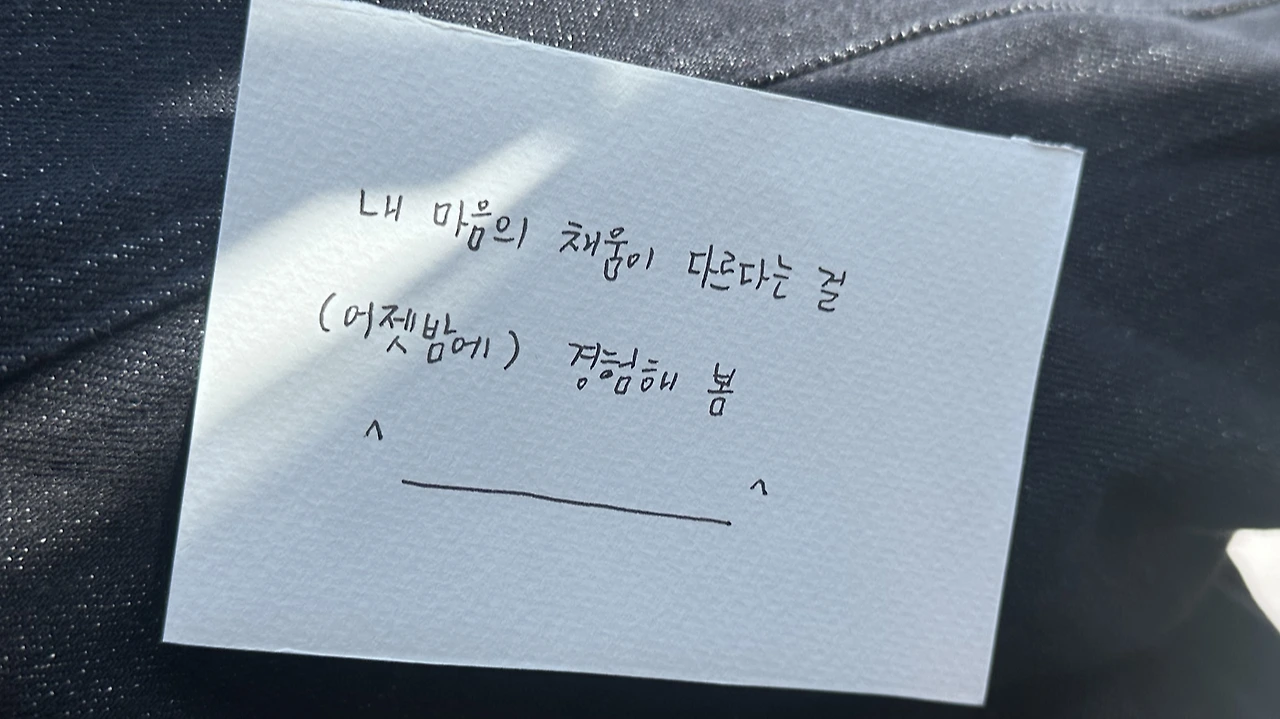 내 마음의 채움이 다르다는 걸
(어젯밤에) 경험해 봄
^____^